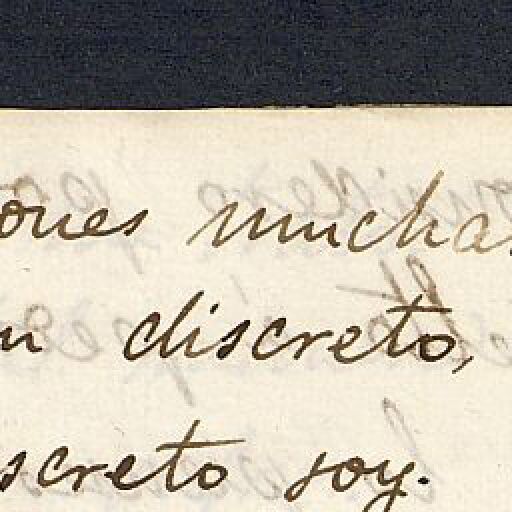 ones muchas
n discreto,
screto soy.